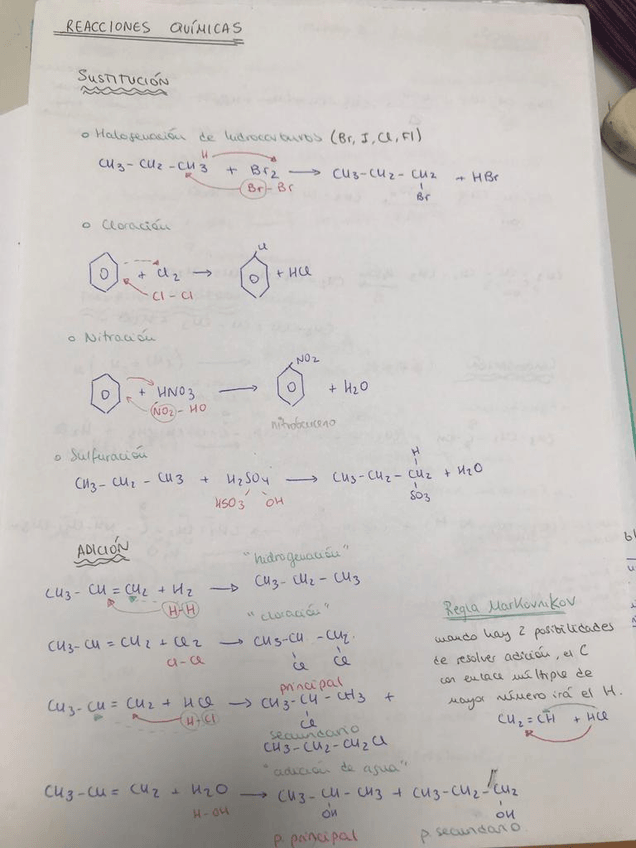 REACCIONES QUÍMICAS
SUSTITUCIÓN
o Halogenación de hidrocarburos (Br, I, Cl, Fl)
CH3-CH2-CH3 + Br2 → CH3-CH2-CH2 + HBr
H
Br-Br
Br
o Cloración
+ Cl2 → + HCl
Cl
Cl-Cl
o Nitración
+ HNO3 → + H2O
NO2
NO2-HO
nitrobenceno
o Sulfuración
CH3-CH2-CH3 + H2SO4 → CH3-CH2-CH2 + H2O
H
HSO3 OH
SO3
ADICIÓN
"hidrogenación"
CH3-CH=CH2 + H2 → CH3-CH2-CH3
H-H
"cloración"
CH3-CH=CH2 + Cl2 → CH3-CH-CH2
Cl-Cl
Cl Cl
principal
CH3-CH=CH2 + HCl → CH3-CH-CH3 +
H-Cl
Cl
secundario
CH3-CH2-CH2Cl
"adición de agua"
CH3-CH=CH2 + H2O → CH3-CH-CH3 + CH3-CH2-CH2
H-OH
OH OH
p. principal p secundario
Regla Markovnikov
cuando hay 2 posibilidades
de resolver adición, el C
con enlace múltiple de
mayor número irá el H.
CH2=CH + HCl